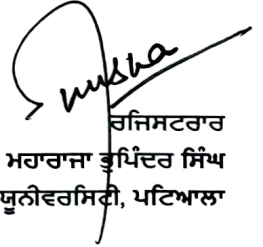 ਰਜਿਸਟਰਾਰ
ਮਹਾਰਾਜਾ ਭੁਪਿੰਦਰ ਸਿੰਘ
ਯੂਨੀਵਰਸਿਟੀ, ਪਟਿਆਲਾ